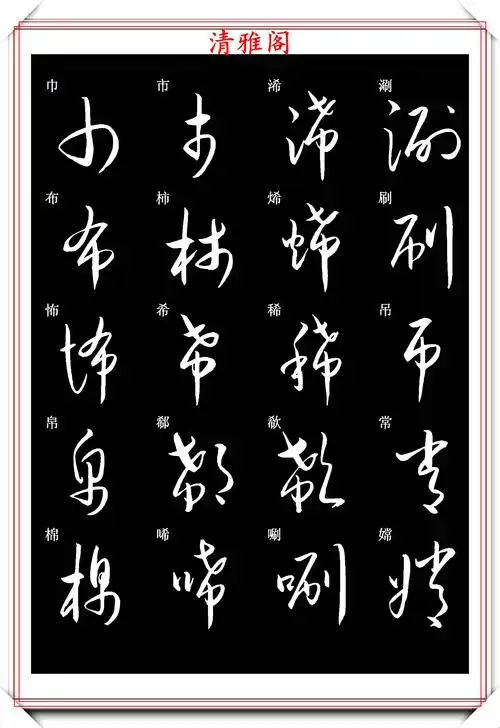 清雅阁
巾 市 浠 涮
布 柿 烯 刷
怖 希 稀 吊
帛 郗 欷 常
棉 唏 唰 嫦